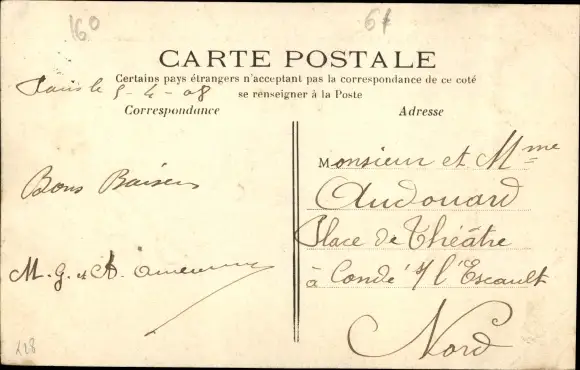 160
CARTE POSTALE
Certains pays étrangers n'acceptant pas la correspondance de ce coté
se renseigner à la Poste
Paris le 5-4-08
Correspondance
Adresse
Bons Baisers
M. G. et A.
Monsieur et Mme
Audouard
Place de Théâtre
à Condé s/ l'Escault
Nord